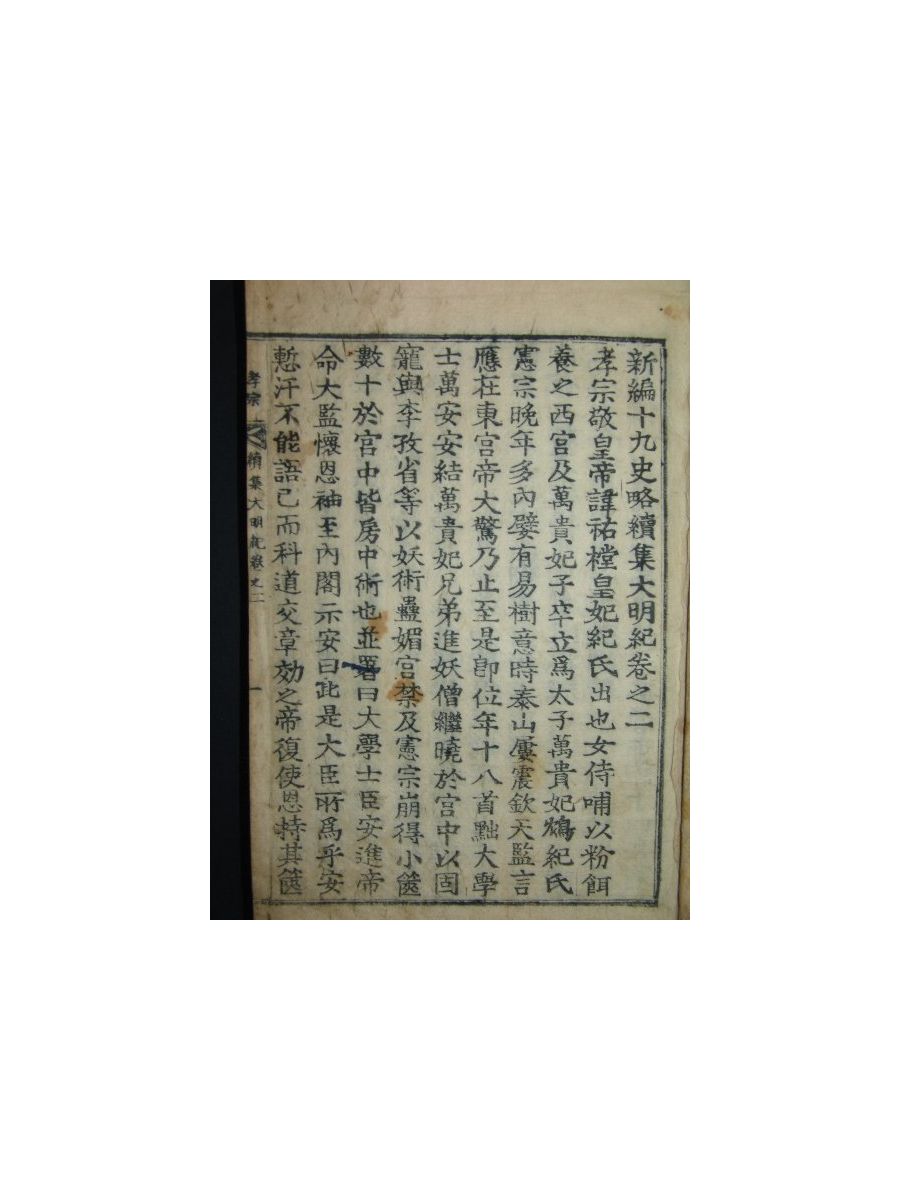 新編十九史略續集大明紀卷之二
孝宗敬皇帝諱祐樘皇妃紀氏出也女侍哺以粉餌
養之西宮及萬貴妃子卒立爲太子萬貴妃鴆紀氏
憲宗晩年多內嬖有易樹意時泰山屢震欽天監言
應在東宮帝大驚乃止至是卽位年十八首黜大學
士萬安安結萬貴妃兄弟進妖僧繼曉於宮中以固
寵與李孜省等以妖術蠱媚宮禁及憲宗崩得小篋
數十於宮中皆房中術也並署曰大學士臣安進帝
命大監懷恩袖至內閣示安曰此是大臣所爲乎安
慙汗不能語已而科道交章劾之帝復使恩持其篋
孝宗 續集大明紀卷之二 一